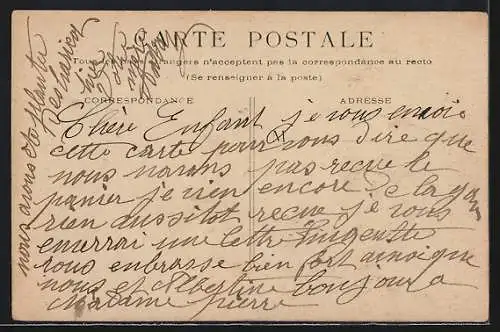 CARTE POSTALE
Tous les pays étrangers n'acceptent pas la correspondance au recto
(Se renseigner à la poste)
CORRESPONDANCE
ADRESSE
Chère Enfant je vous envoie
cette carte pour vous dire que
nous navons pas recue le
panier je vien encore de la gare
rien aussitot recue je vous
enverrai une lettre
vous enbrasse bien fort ainsique
nous et Albertine bonjour a
Madame pierre
nous avons ete